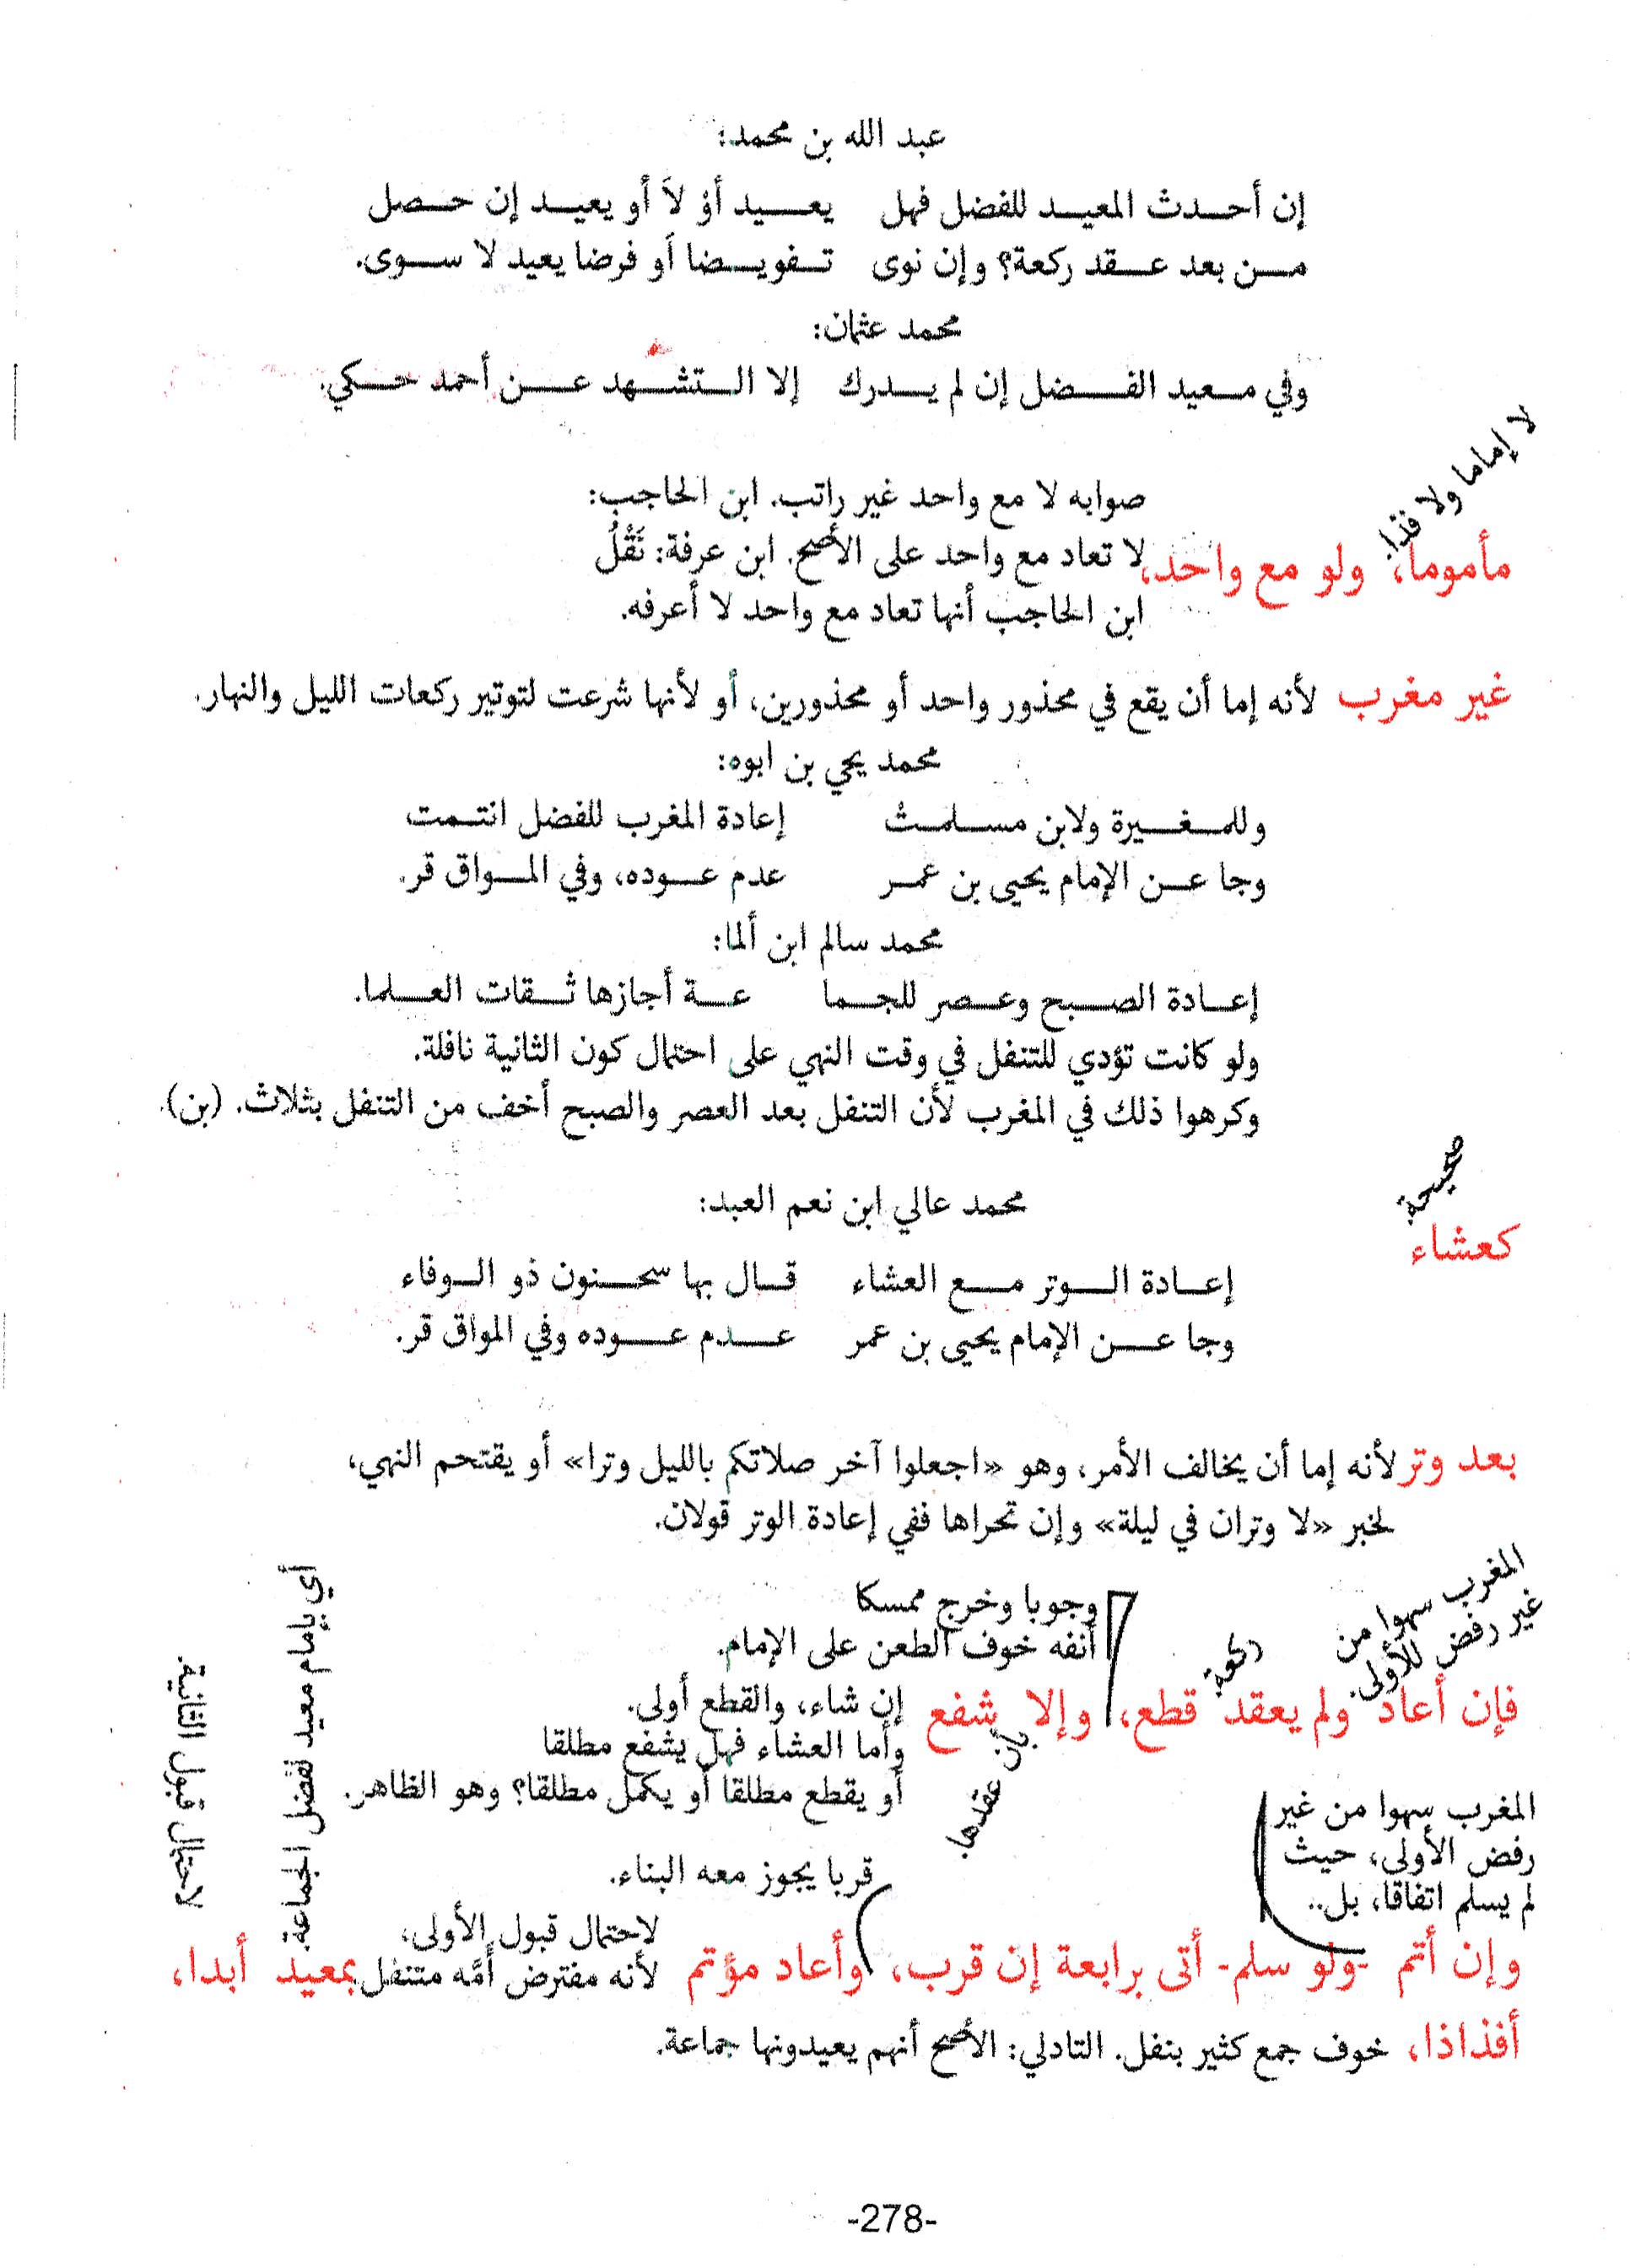 عبد الله بن محمد:
إن أحدث المعيد للفضل فهل يعيد أوْ لاَ أو يعيد إن حصل
من بعد عقد ركعة؟ وإن نوى تفويضا أو فرضا يعيد لا سوى.
محمد عثمان:
وفي معيد الفضل إن لم يدرك إلا التشهد عن أحمد حكي.
لا إماما ولا فذا.
صوابه لا مع واحد غير راتب. ابن الحاجب:
مأموما، ولو مع واحد، لا تعاد مع واحد على الأصح. ابن عرفة: نَقْلُ
ابن الحاجب أنها تعاد مع واحد لا أعرفه.
غير مغرب لأنه إما أن يقع في محذور واحد أو محذورين، أو لأنها شرعت لتوتير ركعات الليل والنهار.
محمد يحي بن ابوه:
وللمغيرة ولابن مسلمتْ إعادة المغرب للفضل انتمت
وجا عن الإمام يحيى بن عمر عدم عوده، وفي المواق قر.
محمد سالم ابن ألما:
إعادة الصبح وعصر للجما عة أجازها ثقات العلما.
ولو كانت تؤدي للتنفل في وقت النهي على احتمال كون الثانية نافلة.
وكرهوا ذلك في المغرب لأن التنفل بعد العصر والصبح أخف من التنفل بثلاث. (بن).
صحيحة.
محمد عالي ابن نعم العبد:
كعشاء
إعادة الوتر مع العشاء قال بها سحنون ذو الوفاء
وجا عن الإمام يحيى بن عمر عدم عوده وفي المواق قر.
بعد وتر لأنه إما أن يخالف الأمر، وهو «اجعلوا آخر صلاتكم بالليل وترا» أو يقتحم النهي،
لخبر «لا وتران في ليلة» وإن تحراها ففي إعادة الوتر قولان.
المغرب سهوا من
غير رفض للأولى.
ركعة
وجوبا وخرج ممسكا
أنفه خوف الطعن على الإمام.
فإن أعاد ولم يعقد قطع، وإلا شفع إن شاء، والقطع أولى.
بأن عقدها
وأما العشاء فهل يشفع مطلقا
أو يقطع مطلقا أو يكمل مطلقا؟ وهو الظاهر.
المغرب سهوا من غير
رفض الأولى، حيث
لم يسلم اتفاقا، بل..
قربا يجوز معه البناء.
لاحتمال قبول الأولى،
وإن أتم -ولو سلم- أتى برابعة إن قرب، وأعاد مؤتم لأنه مفترض أمَّه متنفل بمعيد أبدا،
أي بإمام معيد لفضل الجماعة.
لاحتمال قبول الثانية.
أفذاذا، خوف جمع كثير بنفل. التادلي: الأصح أنهم يعيدونها جماعة.
-278-